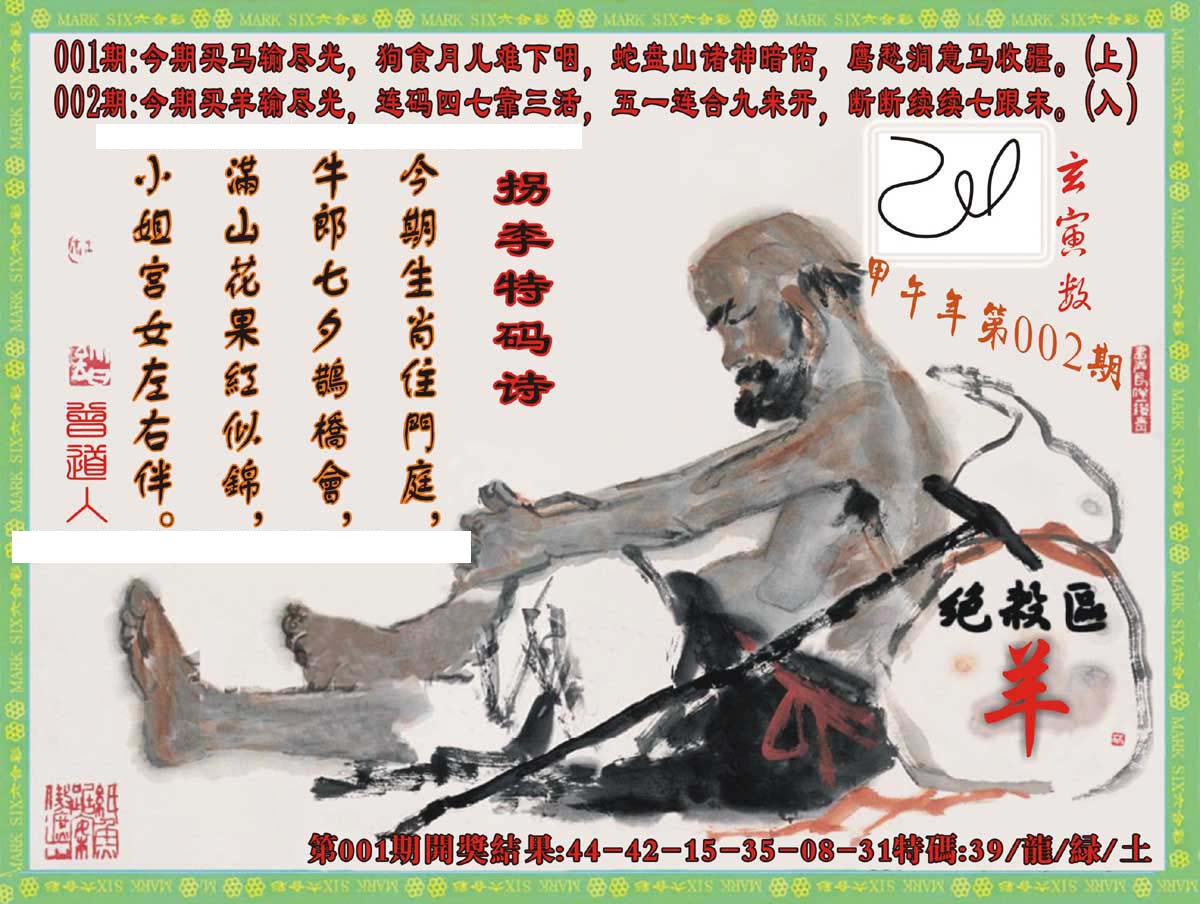 MARK SIX六合彩 MARK SIX六合彩 MARK SIX六合彩 MARK SIX六合彩 MARK SIX六合彩 MARK SIX六合彩 MARK SIX六合彩
001期:今期买马输尽光，狗食月儿难下咽，蛇盘山诸神暗佑，鹰愁涧意马收疆。(上)
002期:今期买羊输尽光，连码四七靠三活，五一连合九来开，断断续续七跟末。(入)
玄寅数
甲午年第002期
拐李特码诗
今期生肖住門庭，
牛郎七夕鵲橋會，
滿山花果紅似錦，
小姐宮女左右伴。
曾道人
绝殺區
羊
第001期開獎結果:44-42-15-35-08-31特碼:39/龍/緑/土